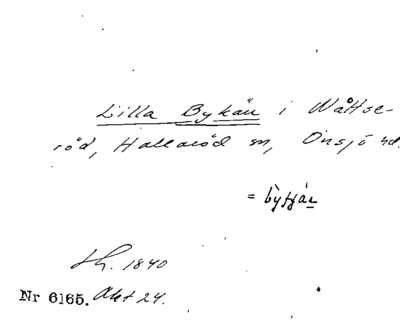 Lilla Bykär i Wåttse-
röd, Hallaröd sn, Onsjö hd.
= býkjär
Lh. 1840
Nr 6165. Akt 24.